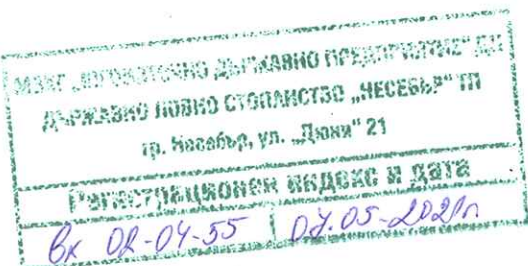 МЗХГ „ЮГОИЗТОЧНО ДЪРЖАВНО ПРЕДПРИЯТИЕ" ДП
ДЪРЖАВНО ЛОВНО СТОПАНСТВО „НЕСЕБЪР" ТП
гр. Несебър, ул. „Дюни" 21
Регистрационен индекс и дата
Вх 02-04-55 07.05-2021г